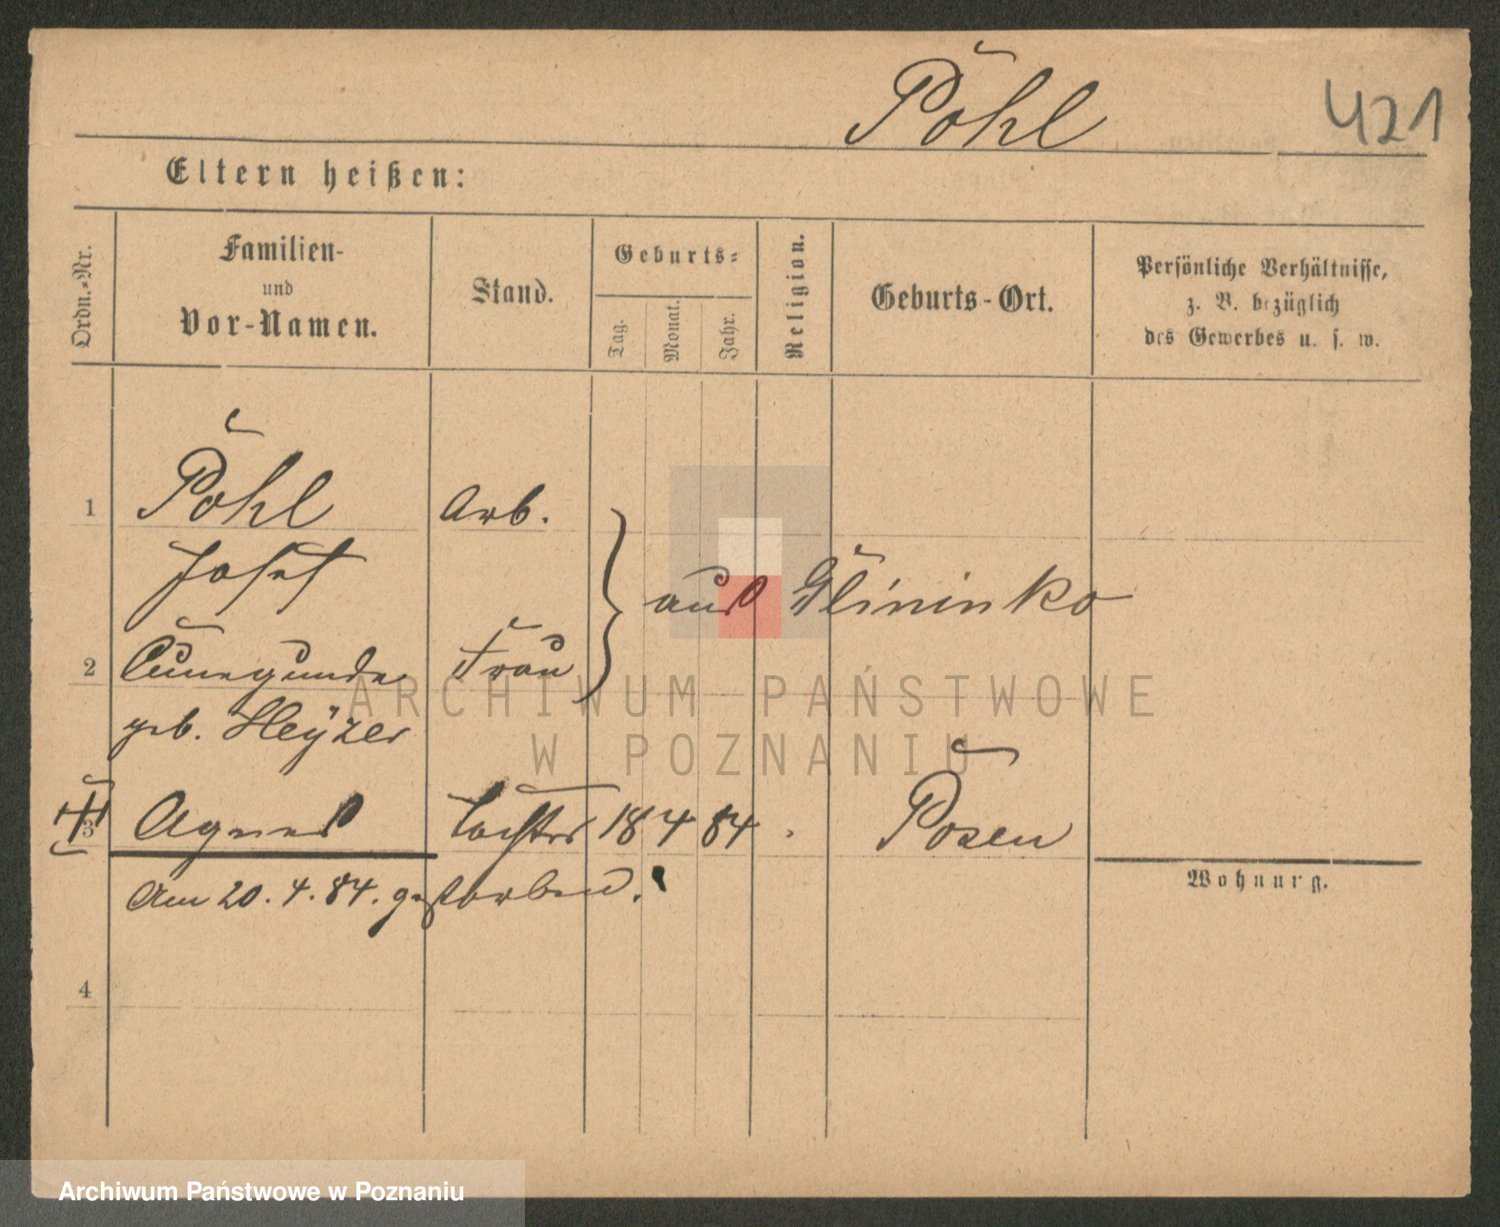 Pohl 421
Eltern heißen:
Ordn.-Nr.
Familien-
und
Vor-Namen.
Stand.
Geburts-
Tag.
Monat.
Jahr.
Religion.
Geburts-Ort.
Persönliche Verhältnisse,
z. B. bezüglich
des Gewerbes u. s. w.
1 Pohl Arb.
Josef
aus Glininko
2 Cunegunde Frau
geb. Heÿzer
3 Agnes Tochter 18 4 84. Posen
Am 20. 4. 84. gestorben.
Wohnung.
4
ARCHIWUM PAŃSTWOWE
W POZNANIU
Archiwum Państwowe w Poznaniu